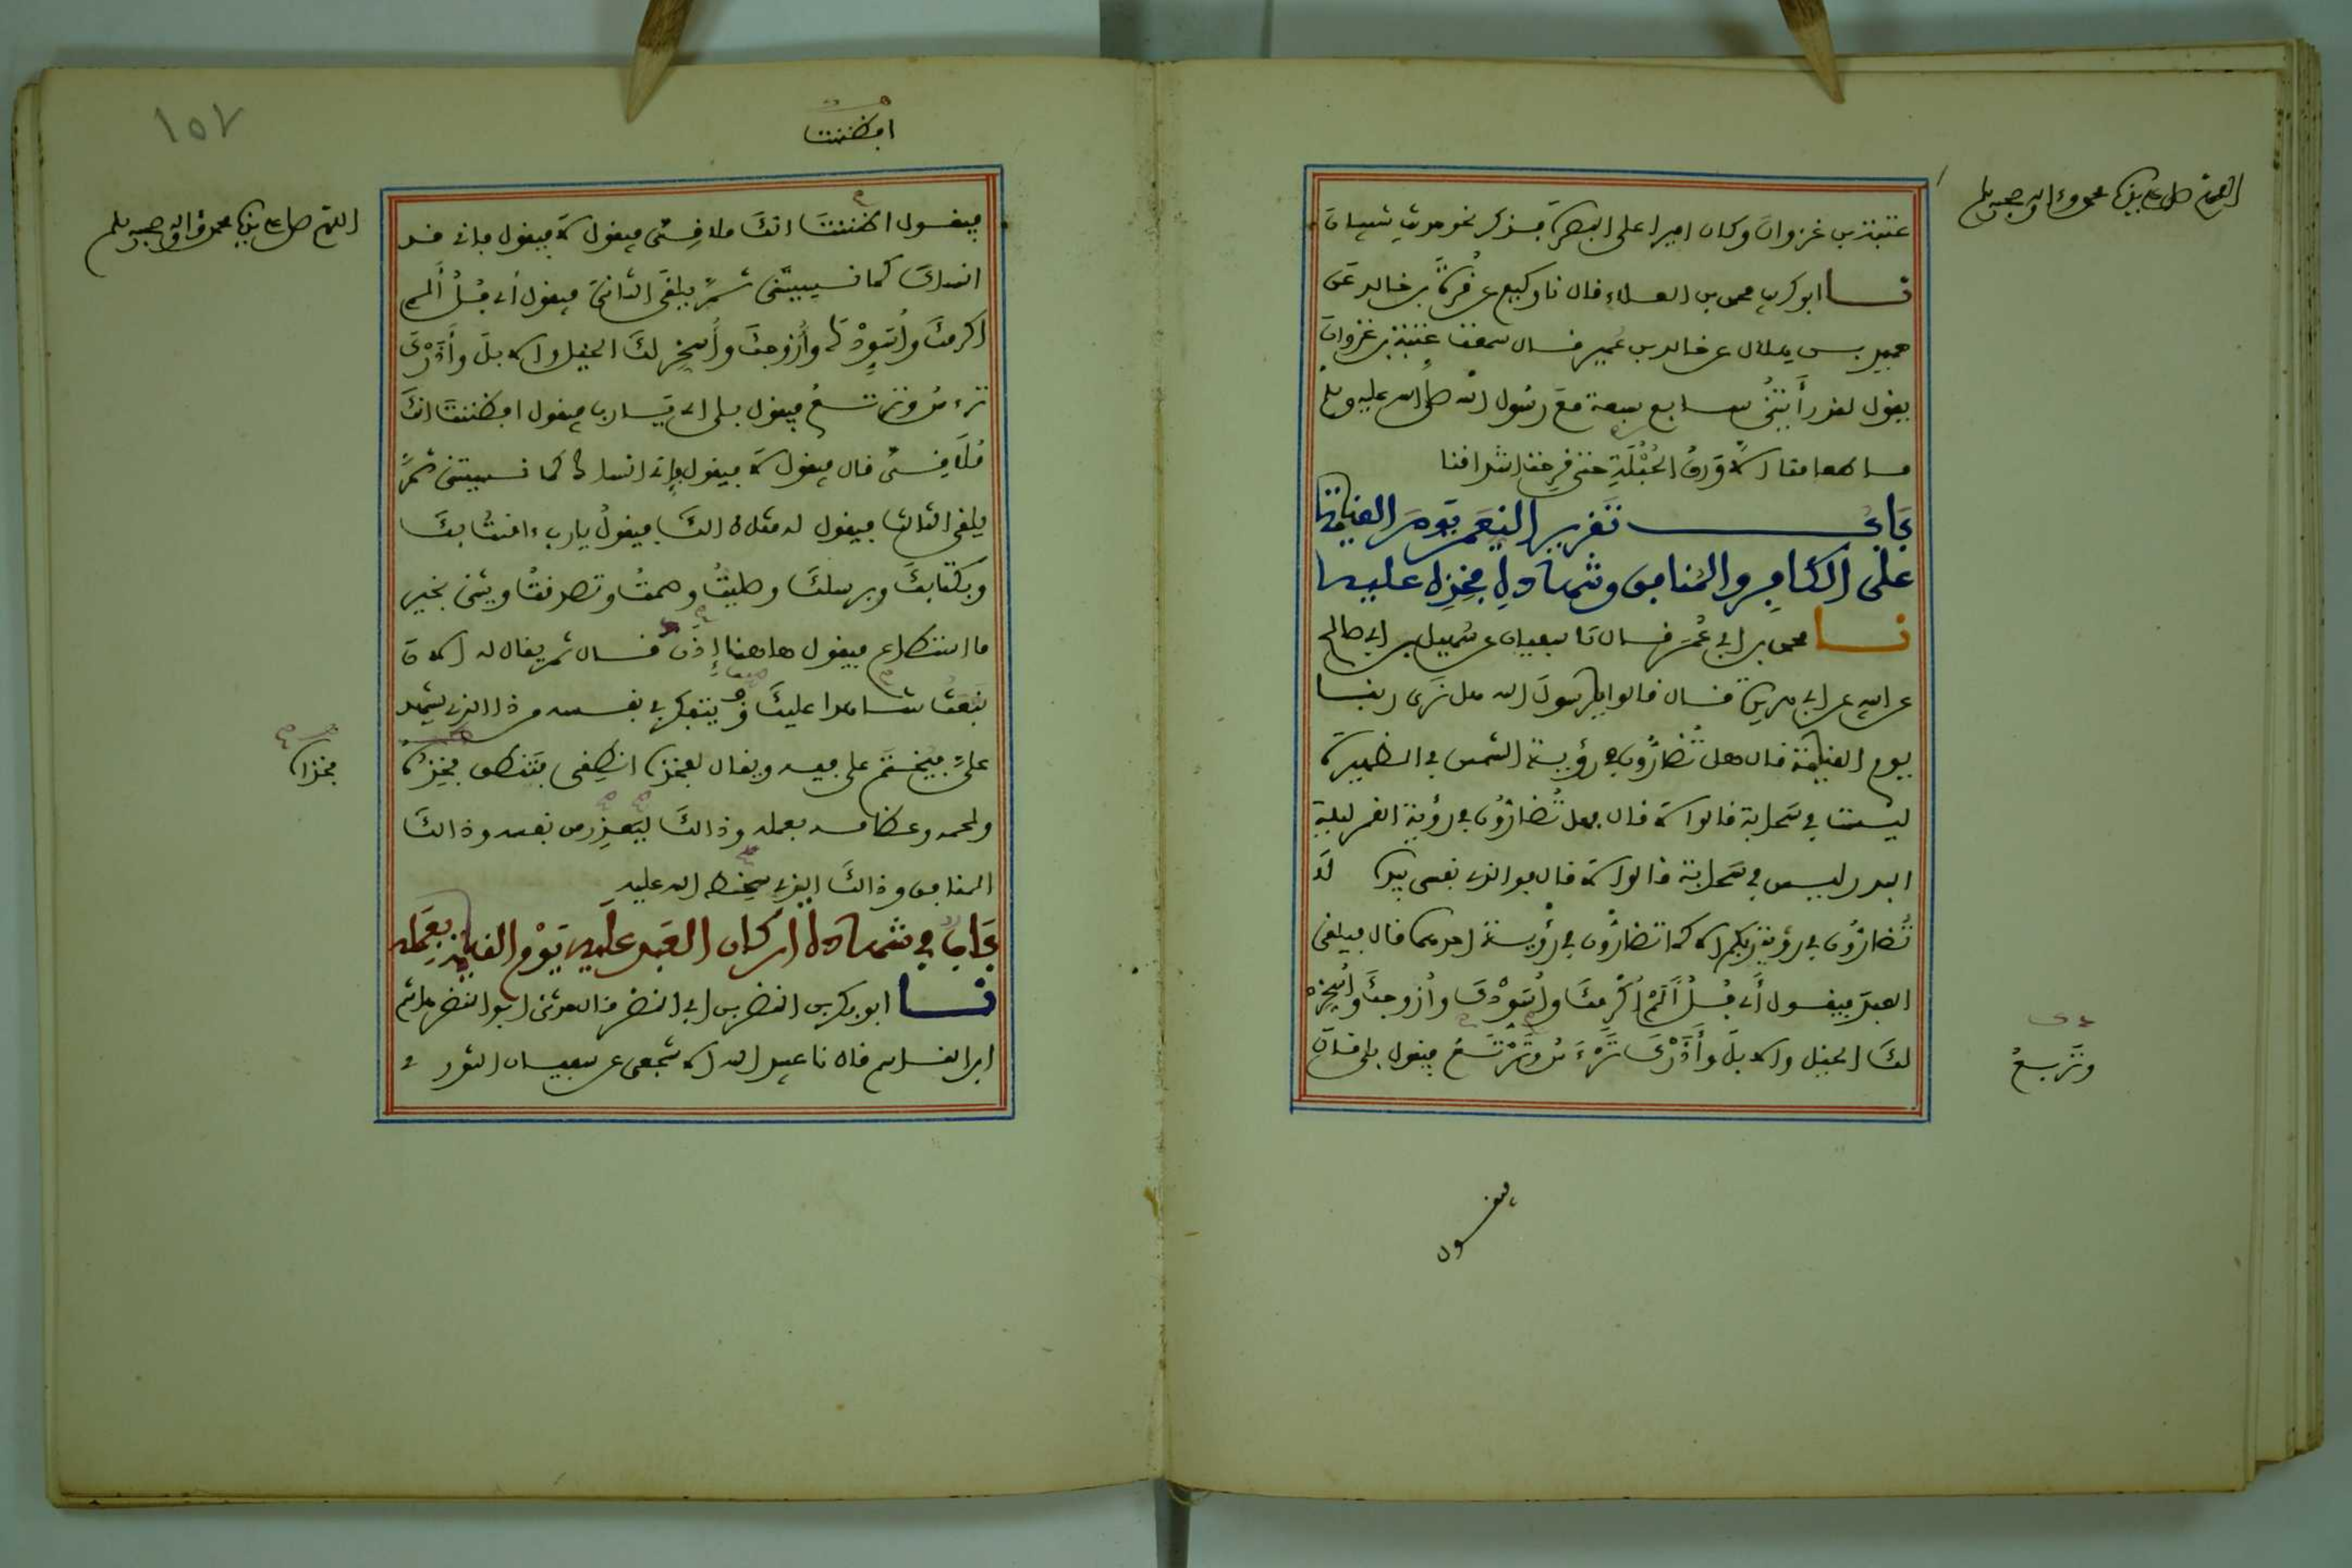 اللهم صل على نبينا محمد وءاله وصحبه وسلم
عتبة بن غزوان وكان اميرا على البصرة فذكر نحو حديث شيبان
نا ابو كريب محمد بن العلاء قال نا وكيع عن قرة بن خالد عن
حميد بن هلال عن خالد بن عمير قال سمعت عتبة بن غزوان
يقول لقد رأيتني سابع سبعة مع رسول الله صلى الله عليه وسلم
ما طعامنا الا ورق الحبلة حتى قرحت اشداقنا
باب تقرير النعم يوم القيامة
على الكافر والمنافق وشهادة فخذه عليه
نا محمد بن ابي عمر قال نا سفيان عن سهيل بن ابي صالح
عن ابيه عن ابي هريرة قال قالوا يا رسول الله هل نرى ربنا
يوم القيامة قال هل تضارون في رؤية الشمس في الظهيرة
ليست في سحابة قالوا لا قال فهل تضارون في رؤية القمر ليلة
البدر ليس في سحابة قالوا لا قال فوالذي نفسي بيده لا
تضارون في رؤية ربكم الا كما تضارون في رؤية احدهما قال فيلقى
العبد فيقول أي فل ألم أكرمك وأسودك وأزوجك وأسخر
لك الخيل والابل وأذرك ترءس وترتع فيقول بلى قال
وتربع
فيقول
١٥٧
افظننت
اللهم صل على نبينا محمد وءاله وصحبه وسلم
فيقول اظننت انك ملاقي فيقول لا فيقول فاني قد
انساك كما نسيتني ثم يلقى الثاني فيقول أي فل ألم
اكرمك وأسودك وأزوجك وأسخر لك الخيل والابل وأذرك
ترءس وترتع فيقول بلى اي يارب فيقول افظننت انك
ملاقي قال فيقول لا فيقول فإني انساك كما نسيتني ثم
يلقى الثالث فيقول له مثل ذالك فيقول يارب ءامنت بك
وبكتابك وبرسلك وصليت وصمت وتصدقت ويثني بخير
ما استطاع فيقول هاهنا إذن قال ثم يقال له الان
نبعث شاهدا عليك ويتفكر في نفسه من ذا الذي يشهد
علي فيختم على فيه ويقال لفخذه انطقي فتنطق فخذه
فخذاه
ولحمه وعظامه بعمله وذالك ليعذر من نفسه وذالك
المنافق وذالك الذي يسخط الله عليه
باب في شهادة اركان العبد عليه يوم القيامة بعمله
نا ابو بكر بن النضر بن ابي النضر قال حدثني ابو النضر هاشم
ابن القاسم قال نا عبيد الله الاشجعي عن سفيان الثوري